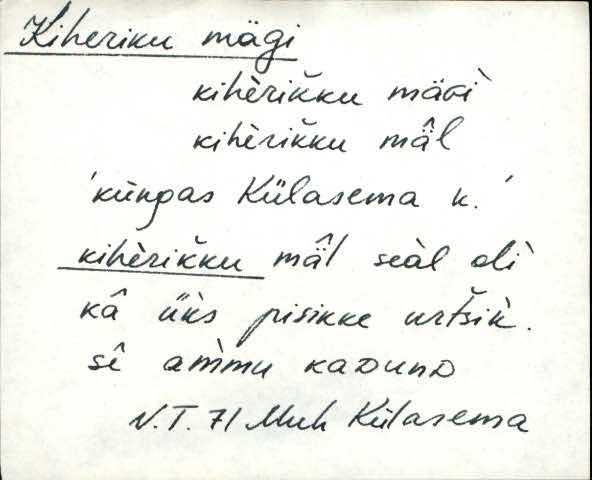 Kiheriku mägi
kihèrikku mäGì
kihèrikku mâ̈l
'küngas Külasema k.'
kihèrikku mâ̈l seàl olì
kâ ük̀s pisikke urtšik̀.
sê am̀mu kaDunD
N.T. 71 Muh Külasema